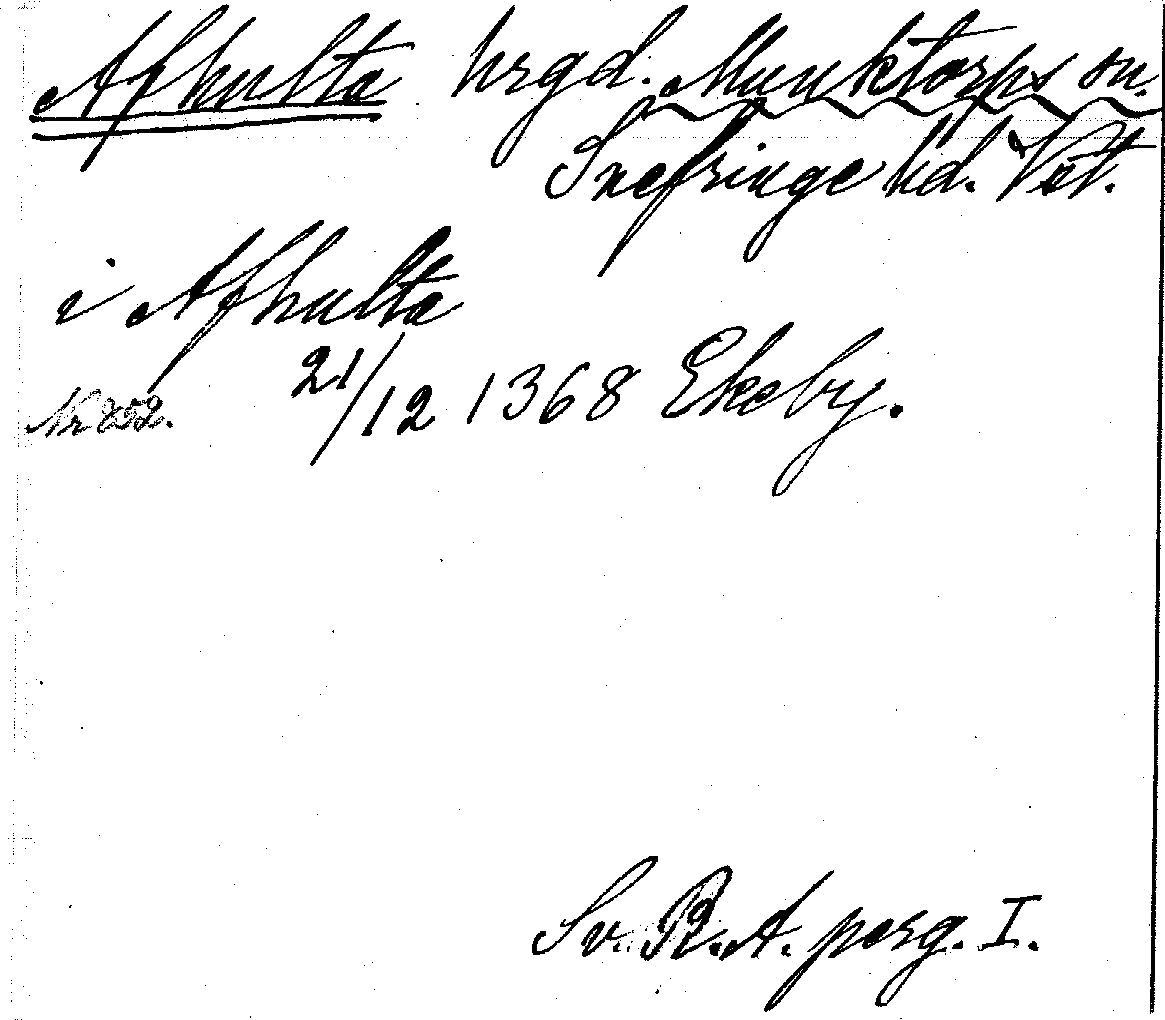 Afhulta hrgd. Munktorps sn.
Snefringe hd. Vst.
i Afhulta
21/12 1368 Ekeby.
Nr 252.
Sv. R. A. perg. I.